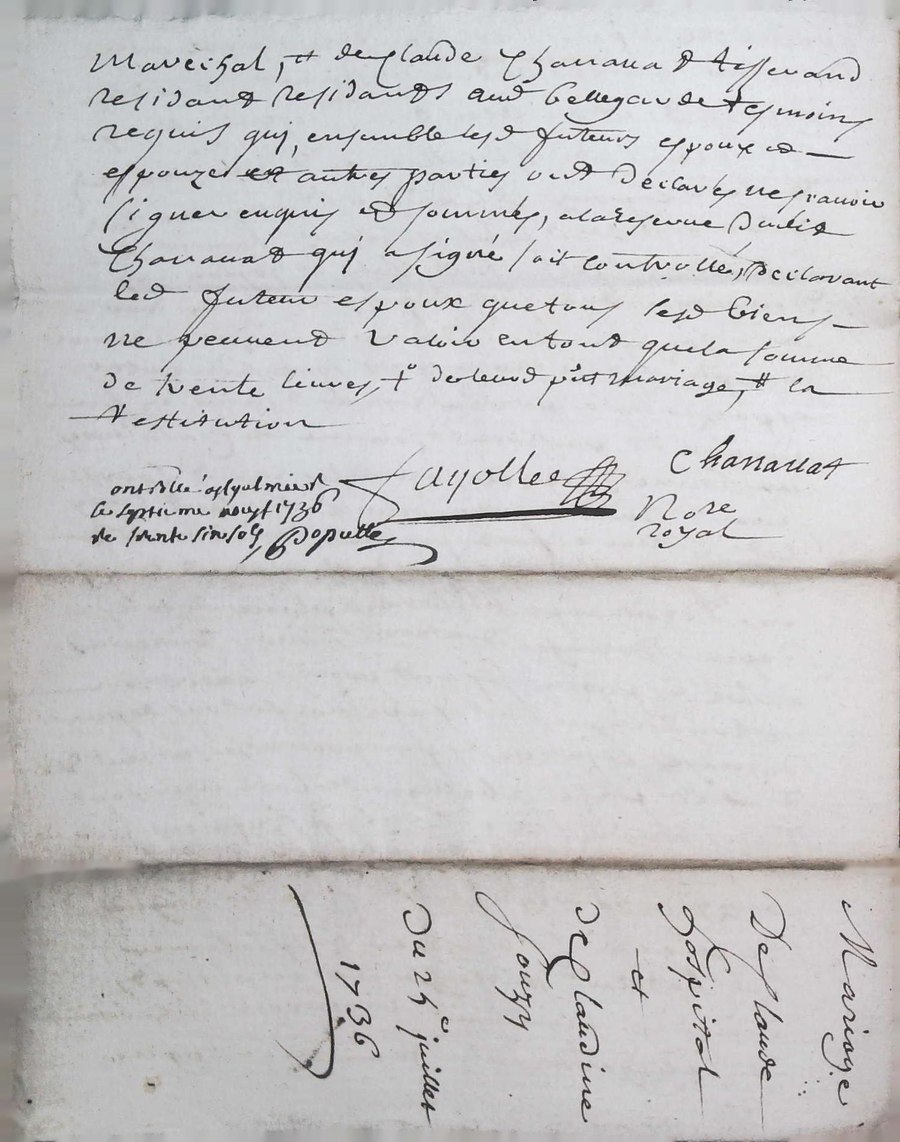 Marechal, et de Claude Chanauat tisserand
residant residants aud bellegarde tesmoins
requis qui, ensemble lesd futurs espoux et
espouze et autres parties ont declarés ne scauoir
signer enquis et sommés, a la reserue dudit
Chanauat qui a signé soit controllé, declarant
led futeur espoux que tous sesd biens
ne peuuent valoir en tout que la somme
de trente liures, deleurd pnt mariage, et la
restitution
Fayolle
Chanauat
Nore
royal
ontrolle a
le septieme aoust 1736
Mariage
De Claude
Lospital
et
de Claudine
Gouzy
Du 25e juillet
1736